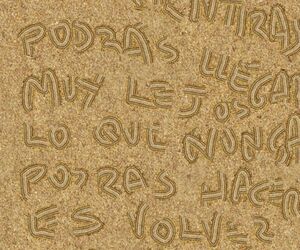 PODRAS LLEGA
MUY LEJOS
LO QUE NUNCA
PODRAS HACER
ES VOLVER